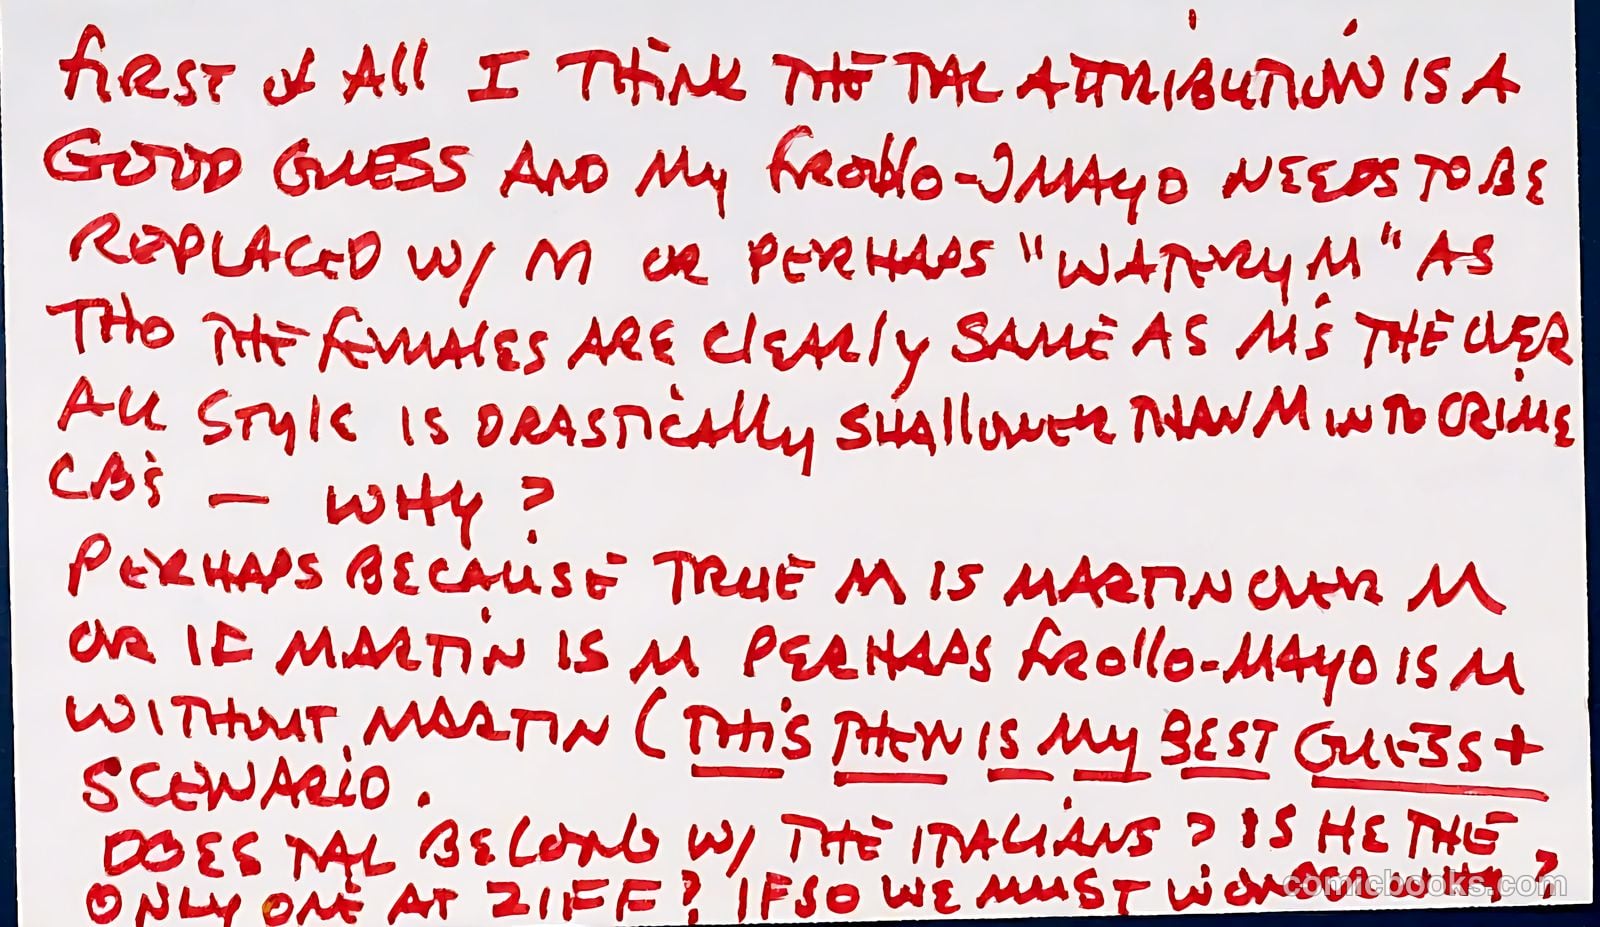 FIRST of All I THINK THE TAL ATTRIBUTION IS A
GOOD GUESS AND My frollo-IMAYO NEEDS TO BE
REPLACED W/ M OR PERHAPS "WATERY M" AS
THO THE fEMAlES ARE clEARly SAME AS M'S THE OVER
All STylE IS DRASTICAlly SHAllOWER THAN M INTO CRIME
CB'S — WHy?
PERHAPS BECAUSE TRUE M IS MARTIN OVER M
OR IF MARTIN IS M PERHAPS frollo-MAYO IS M
WITHOUT MARTIN (THIS THEN IS My BEST GUESS +
SCENARIO.
DOES TAL BELONG W/ THE ITALIANS? IS HE THE
ONLY ONE AT ZIFF? IF SO WE MUST WONDER WHY?
comicbooks.com